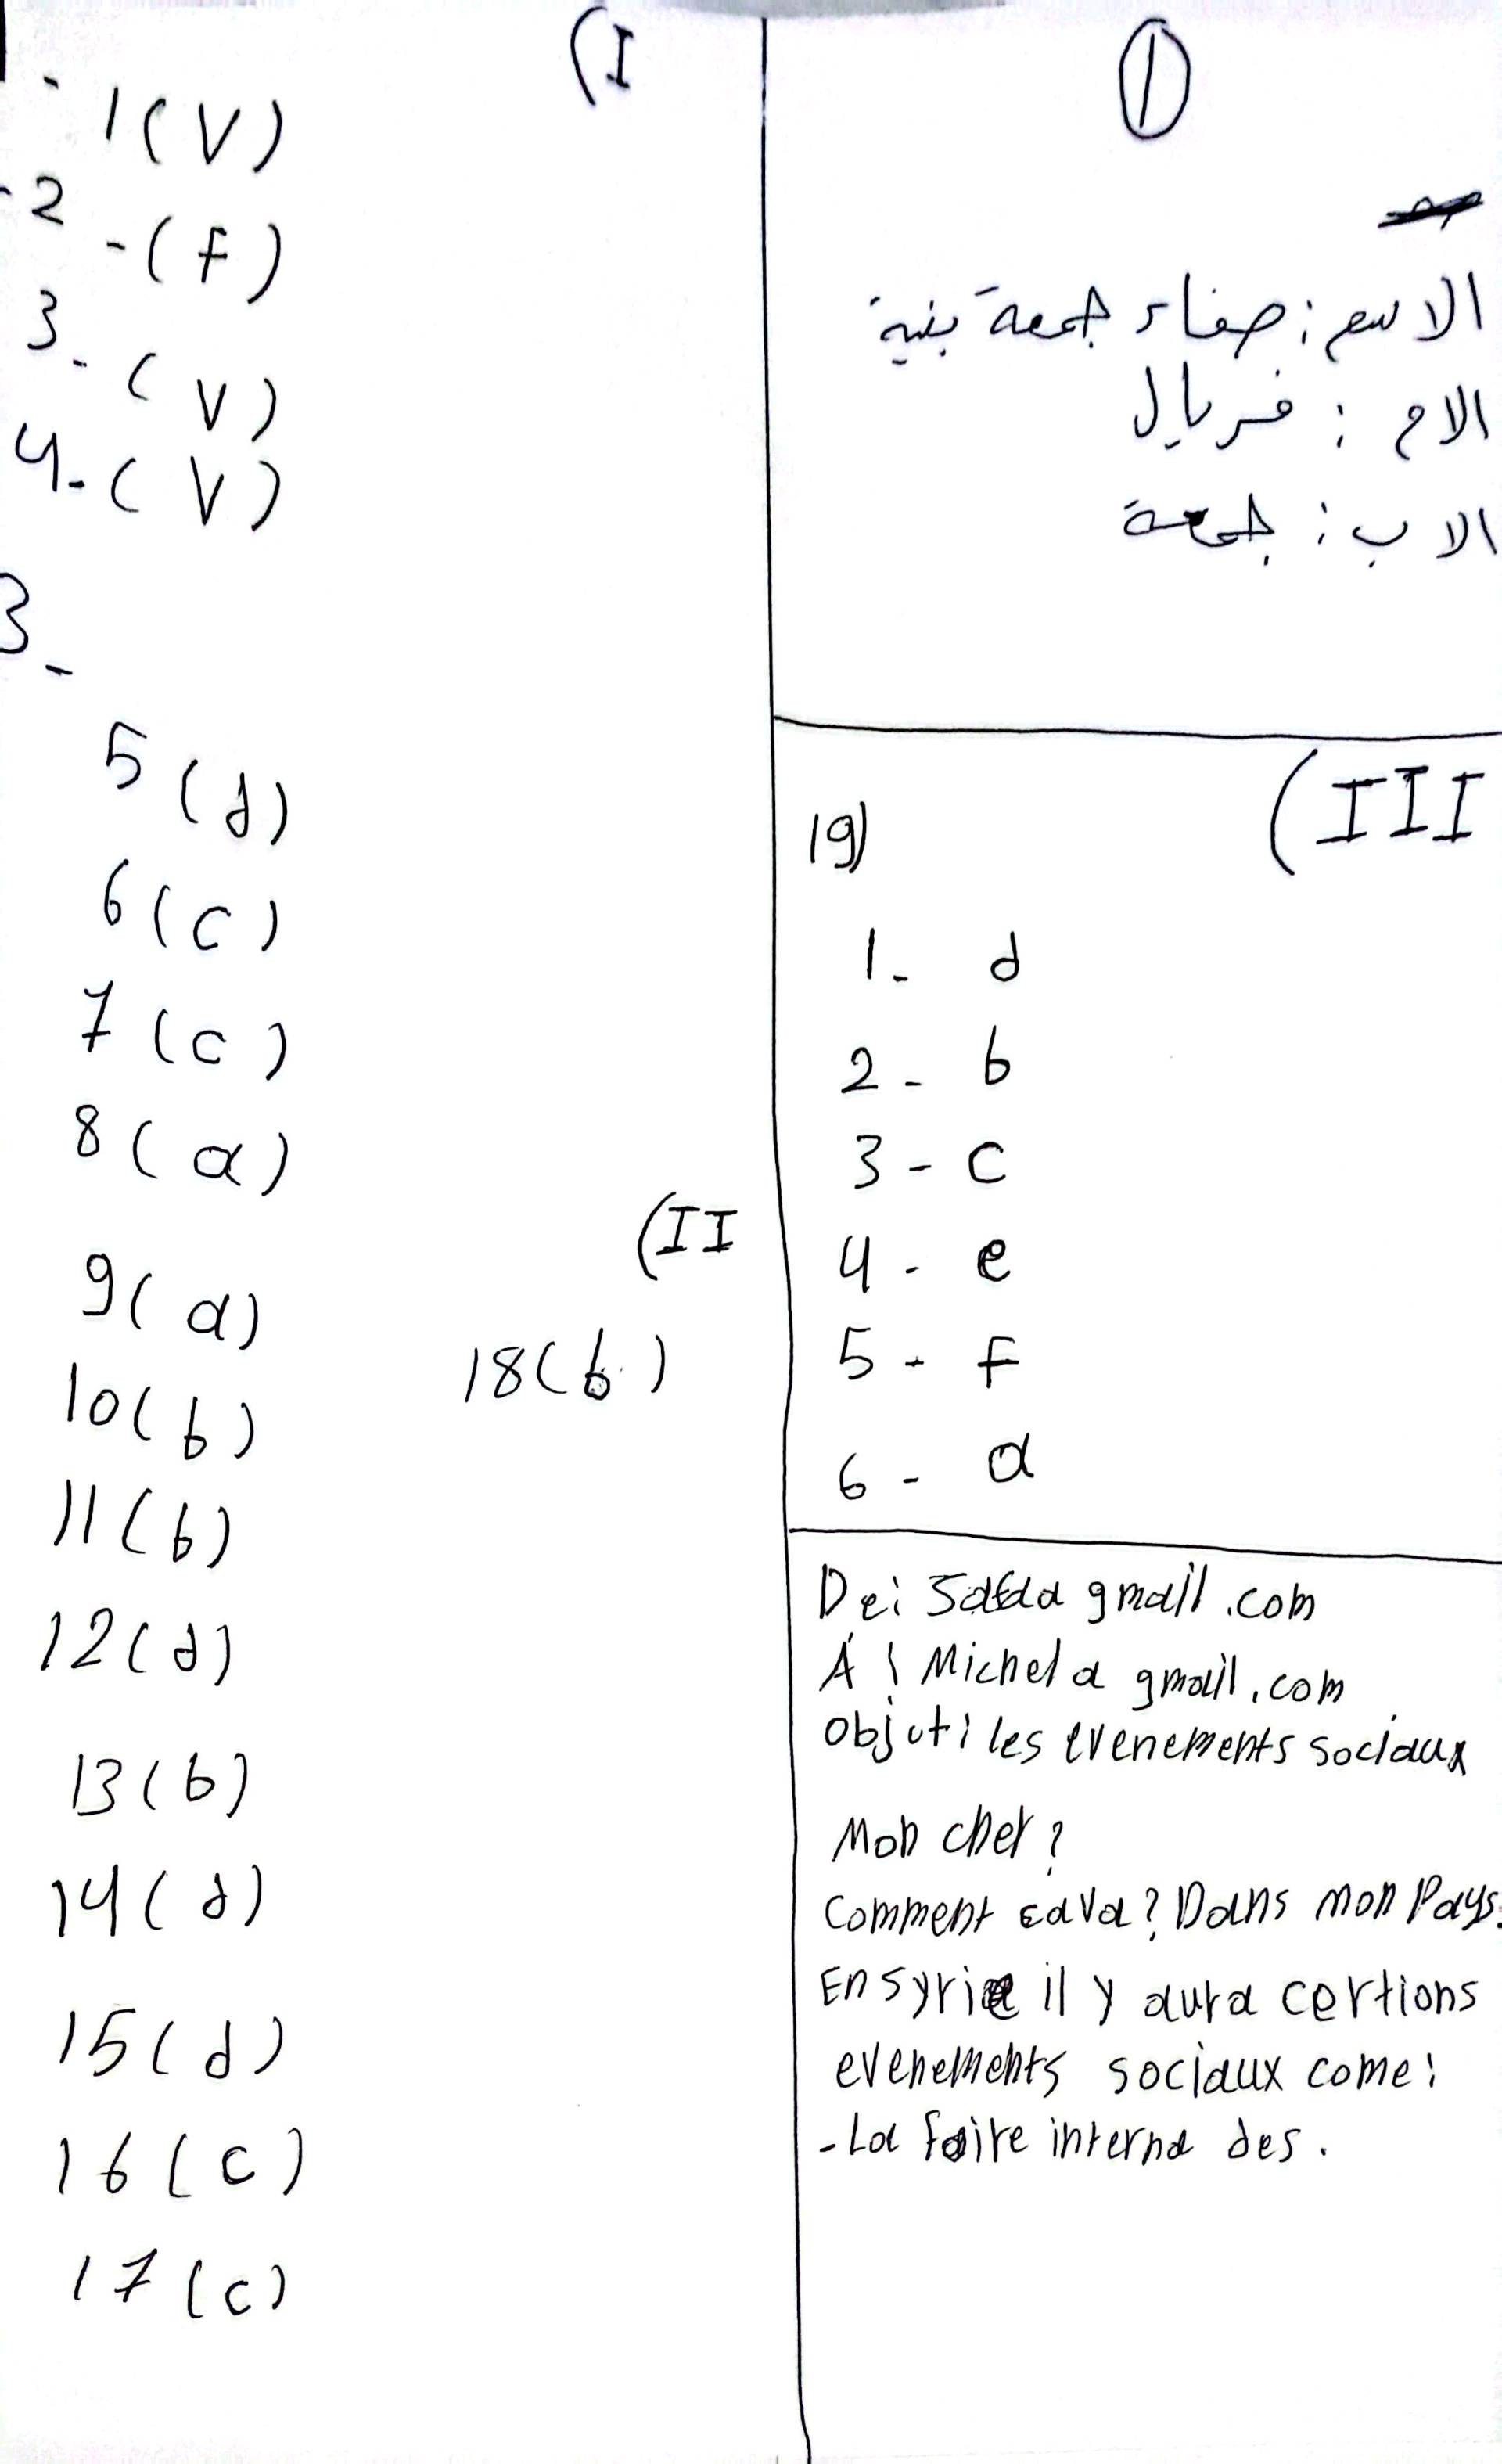 (I
1 (V)
2 - (F)
3 - (V)
4 - (V)
3 -
5 (d)
6 (c)
7 (c)
8 (a)
(II
9 (a)
10 (b)
11 (b)
12 (d)
13 (b)
14 (d)
15 (d)
16 (c)
17 (c)
18 (b)
1
الاسم : صفاء جمعة بنية
الام : فريال
الاب : جمعة
(III
19)
1 - d
2 - b
3 - c
4 - e
5 - F
6 - a
De: Safaa gmail.com
À : Michel a gmail.com
Objet: les evenements sociaux
Mon cher ?
Comment cava? Dans mon Pays.
En syrie il y aura certions
evenements sociaux come:
- La foire interna des.